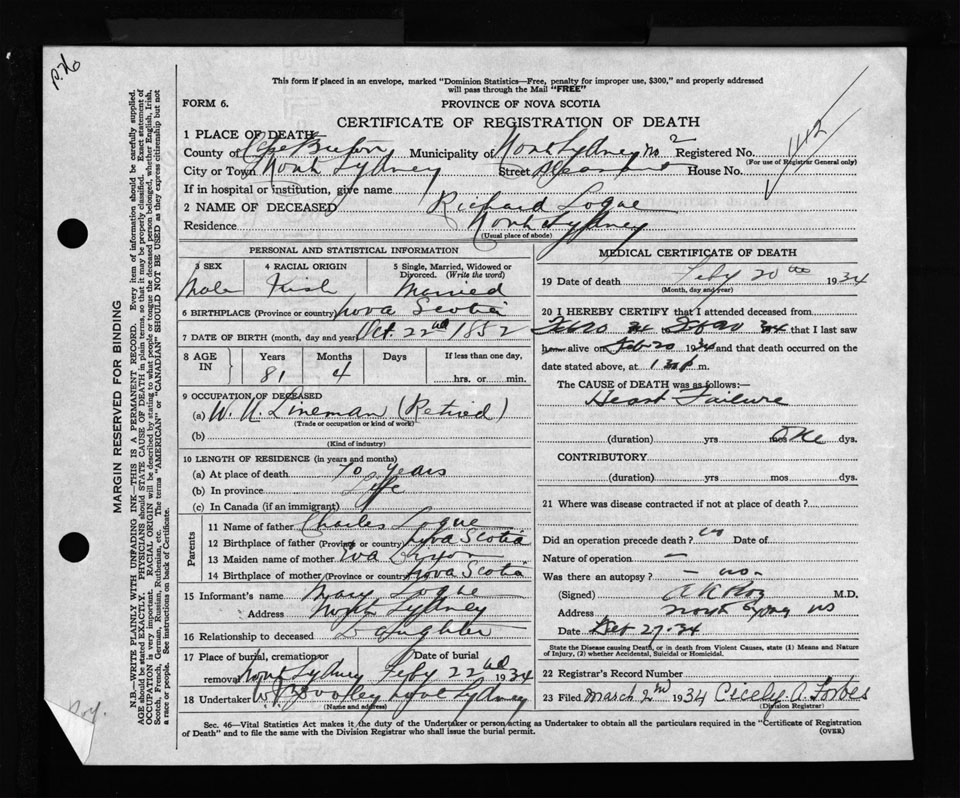 This form if placed in an envelope, marked "Dominion Statistics—Free, penalty for improper use, $300," and properly addressed
will pass through the Mail "FREE"
FORM 6. PROVINCE OF NOVA SCOTIA
CERTIFICATE OF REGISTRATION OF DEATH
1 PLACE OF DEATH
County of Cape Breton Municipality of North Sydney No 2 Registered No.
(For use of Registrar General only)
City or Town North Sydney Street Pleasant House No.
If in hospital or institution, give name
2 NAME OF DECEASED Richard Logue
Residence North Sydney
(Usual place of abode)
PERSONAL AND STATISTICAL INFORMATION
3 SEX 4 RACIAL ORIGIN 5 Single, Married, Widowed or Divorced. (Write the word)
Male Irish Married
6 BIRTHPLACE (Province or country) Nova Scotia
7 DATE OF BIRTH (month, day and year) Oct. 22nd 1852
8 AGE IN Years Months Days If less than one day,
81 4 hrs. or min.
9 OCCUPATION OF DECEASED
(a) W. U. Lineman (Retired)
(Trade or occupation or kind of work)
(b)
(Kind of industry)
10 LENGTH OF RESIDENCE (in years and months)
(a) At place of death 70 years
(b) In province Life
(c) In Canada (if an immigrant)
Parents
11 Name of father Charles Logue
12 Birthplace of father (Province or country) Nova Scotia
13 Maiden name of mother Eva
14 Birthplace of mother (Province or country) Nova Scotia
15 Informant's name Mary Logue
Address North Sydney
16 Relationship to deceased Daughter
17 Place of burial, cremation or removal North Sydney Date of burial Feby 22nd 1934
18 Undertaker North Sydney
(Name and address)
MEDICAL CERTIFICATE OF DEATH
19 Date of death Feby 20th 1934
(Month, day and year)
20 I HEREBY CERTIFY that I attended deceased from
Feb 20 34 to Feb 20 34 that I last saw
h alive on Feb-20 1934 and that death occurred on the
date stated above, at 1 m.
The CAUSE of DEATH was as follows:—
Heart Failure
(duration) yrs mos One dys.
CONTRIBUTORY
(duration) yrs mos dys.
21 Where was disease contracted if not at place of death?
Did an operation precede death? no Date of
Nature of operation —
Was there an autopsy? — no —
(Signed) M.D.
Address North Sydney NS
Date 27-34
State the Disease causing Death, or in death from Violent Causes, state (1) Means and Nature
of Injury, (2) whether Accidental, Suicidal or Homicidal.
22 Registrar's Record Number
23 Filed March 2nd 1934 Cicely A. Forbes
(Division Registrar)
Sec. 46—Vital Statistics Act makes it the duty of the Undertaker or person acting as Undertaker to obtain all the particulars required in the "Certificate of Registration
of Death" and to file the same with the Division Registrar who shall issue the burial permit.
(OVER)
MARGIN RESERVED FOR BINDING
N.B.—WRITE PLAINLY WITH UNFADING INK—THIS IS A PERMANENT RECORD. Every item of information should be carefully supplied.
AGE should be stated EXACTLY. PHYSICIANS should STATE CAUSE OF DEATH in plain terms, so that it may be properly classified. Exact statement of
OCCUPATION is very important. RACIAL ORIGIN will be described by stating to what people or tongue the deceased person belonged, whether English, Irish,
Scotch, French, German, Russian, Ruthenian, etc. The terms "AMERICAN" or "CANADIAN" SHOULD NOT BE USED as they express citizenship but not
a race or people. See instructions on back of Certificate.